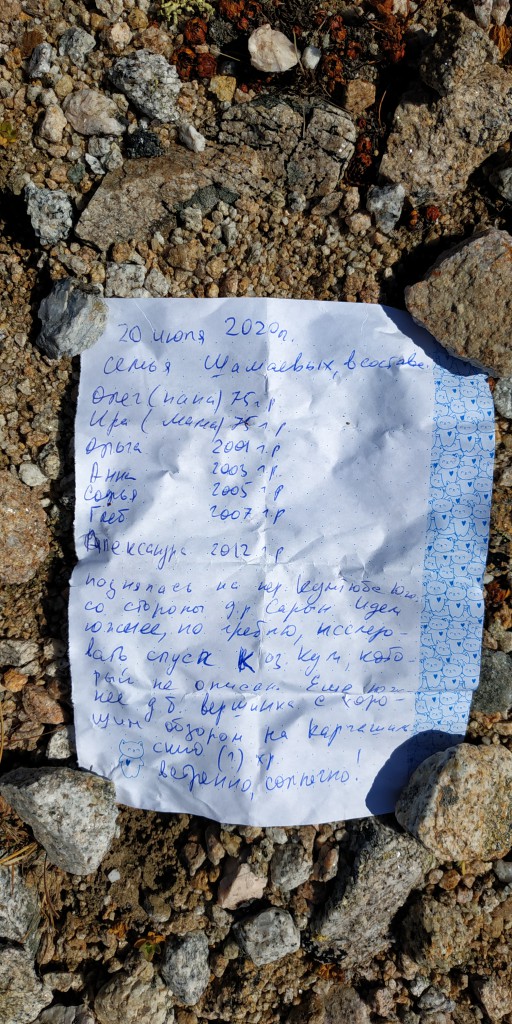 20 июля 2020г.
семья Шамаевых, в составе
Олег (папа) 75 г.р
Ира (мама) 75 г.р
Ольга 2001 г.р
Анна 2003 г.р.
Софья 2005 г.р
Глеб 2007 г.р
Александра 2012 г.р
поднялась на пер. Кунтюбе юж.
со стороны д.р. Сарын. Идем
южнее, по гребню, исследо-
вать спуск к оз. Кум, кото-
рый не описан. Еще юж-
нее д.б. вершинка с хоро-
шим обзором на Карча
(?) хр.
ветренно, солнечно!